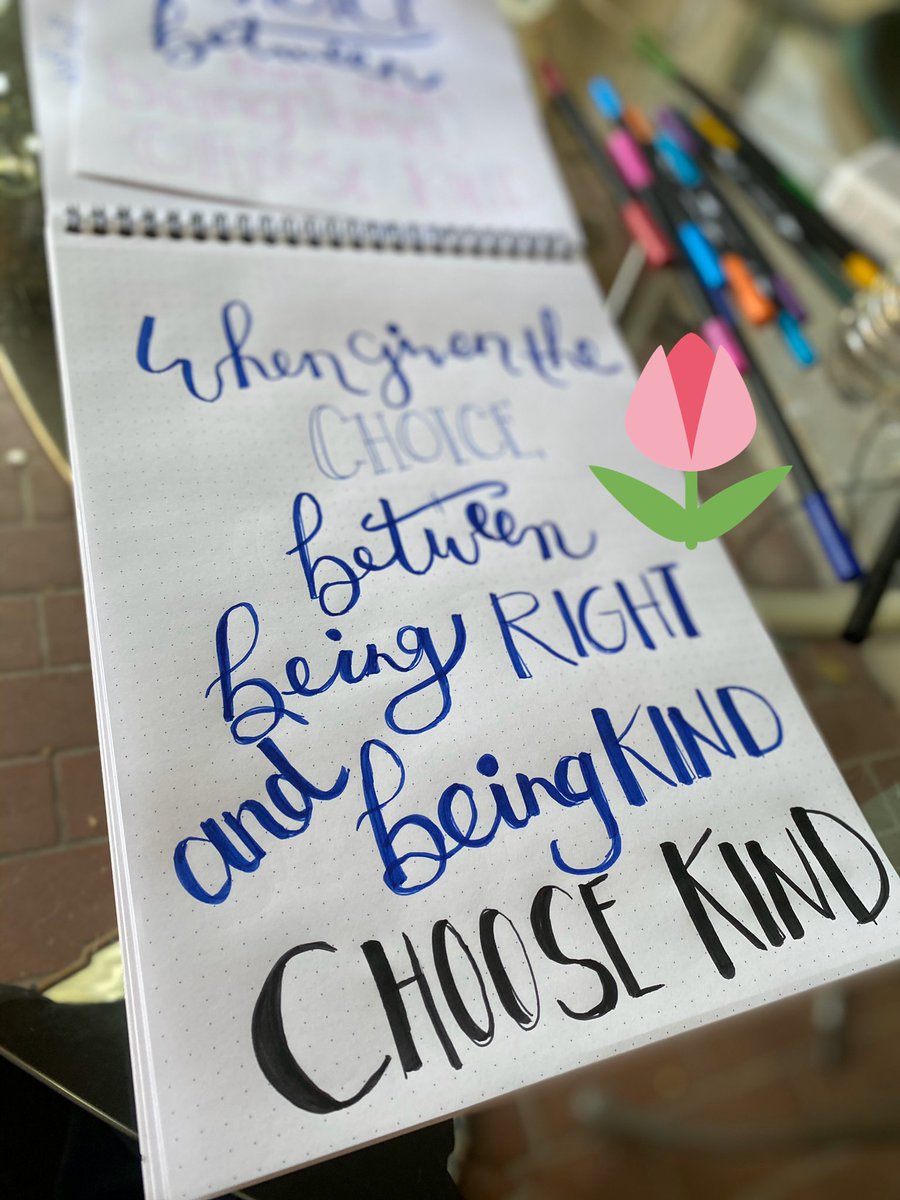 between
When given the
CHOICE
between
being RIGHT
and being KIND
CHOOSE KIND